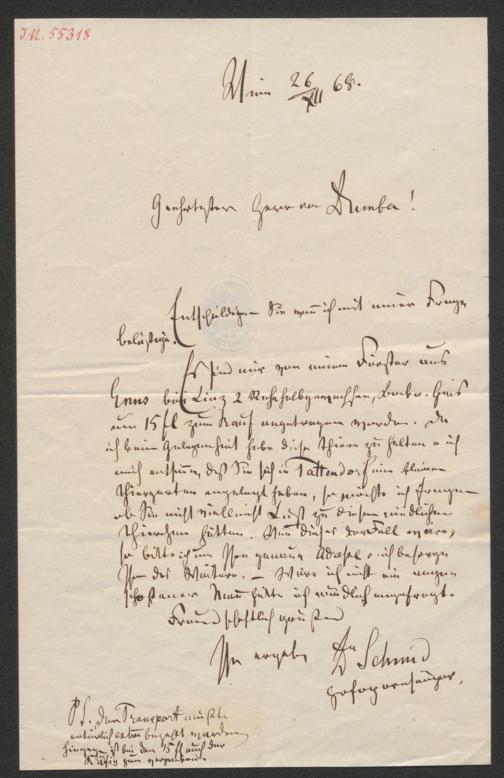 I.N. 55318
Wien 26/XII 68.
Geehrtester Herr von Dumba!
Entschuldigen Sie wenn ich mit einer Frage
belästige.
Es sind mir von einem Förster aus
Enns bei Linz 2 Rehe halbgewachsen, Bock u. Geis
um 15 fl zum Kauf angetragen worden. Da
ich keine Gelegenheit habe diese Thiere zu halten u ich
mich entsinne, daß Sie sich in Tattendorf ein kleinen
Thiergarten angelegt haben, so möchte ich fragen
ob Sie nicht vielleicht Lust zu diesen niedlichen
Thierchen hätten. Wenn dieses der Fall wäre,
so bitte ich um Ihre genaue Adresse u ich besorge
Ihnen das Weitere. – Wäre ich nicht ein angen
schossener Mann hätte ich mündlich angefragt.
Freundschaftlich grüßend
Ihr ergeb Dr Schmid
Hofopernsänger,
P.S. Der Transport müßte
natürlich extra bezahlt werden
hingegen ist bei den 15 fl auch der
Käfig zum